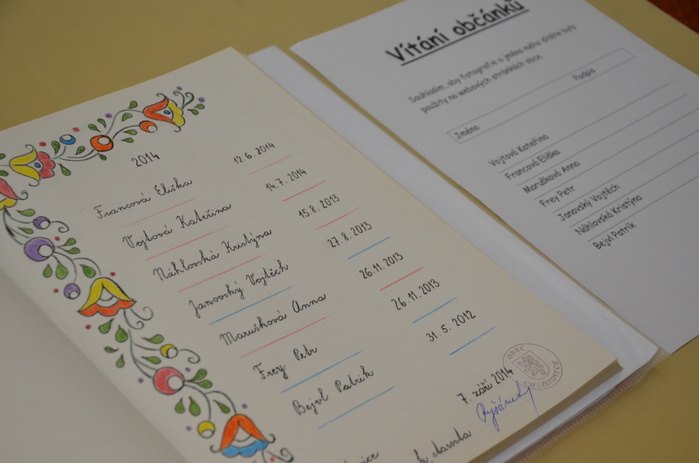 2014
Francová Eliška 12.6.2014
Vojtová Kateřina 14.7.2014
Náhlovská Kristýna 15.8.2013
Janovský Vojtěch 27.8.2013
Marušková Anna 26.11.2013
Frey Petr 26.11.2013
Bejvl Patrik 31.5.2012
7. září 2014
starosta
OBEC
Vítání občánků
Souhlasím, aby fotografie a jméno mého dítěte byly
použity na webových stránkách obce.
Jméno Podpis
Vojtová Kateřina
Francová Eliška
Marušková Anna
Frey Petr
Janovský Vojtěch
Náhlovská Kristýna
Bejvl Patrik